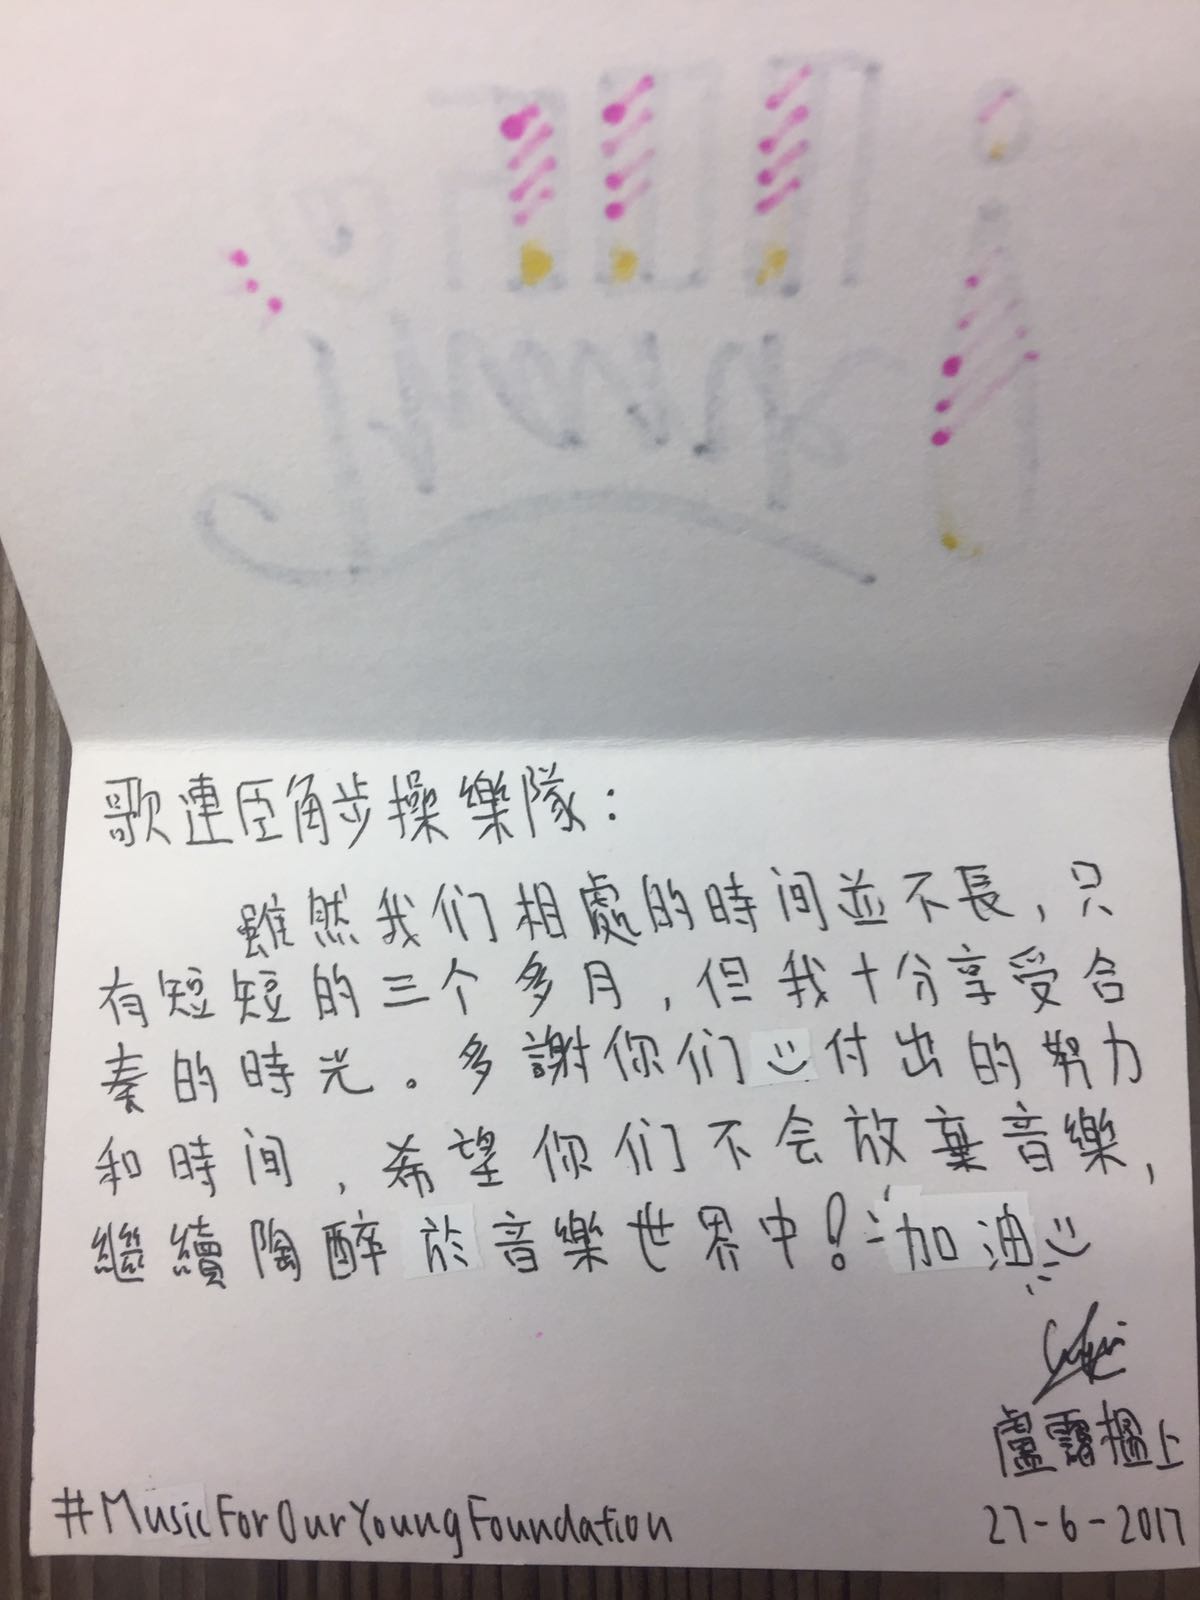 歌連臣角步操樂隊：
雖然我们相處的時间並不長，只
有短短的三个多月，但我十分享受合
奏的時光。多謝你们付出的努力
和時间，希望你们不会放棄音樂，
繼續陶醉於音樂世界中！加油
盧靄楹上
27-6-2017
#MusicForOurYoungFoundation